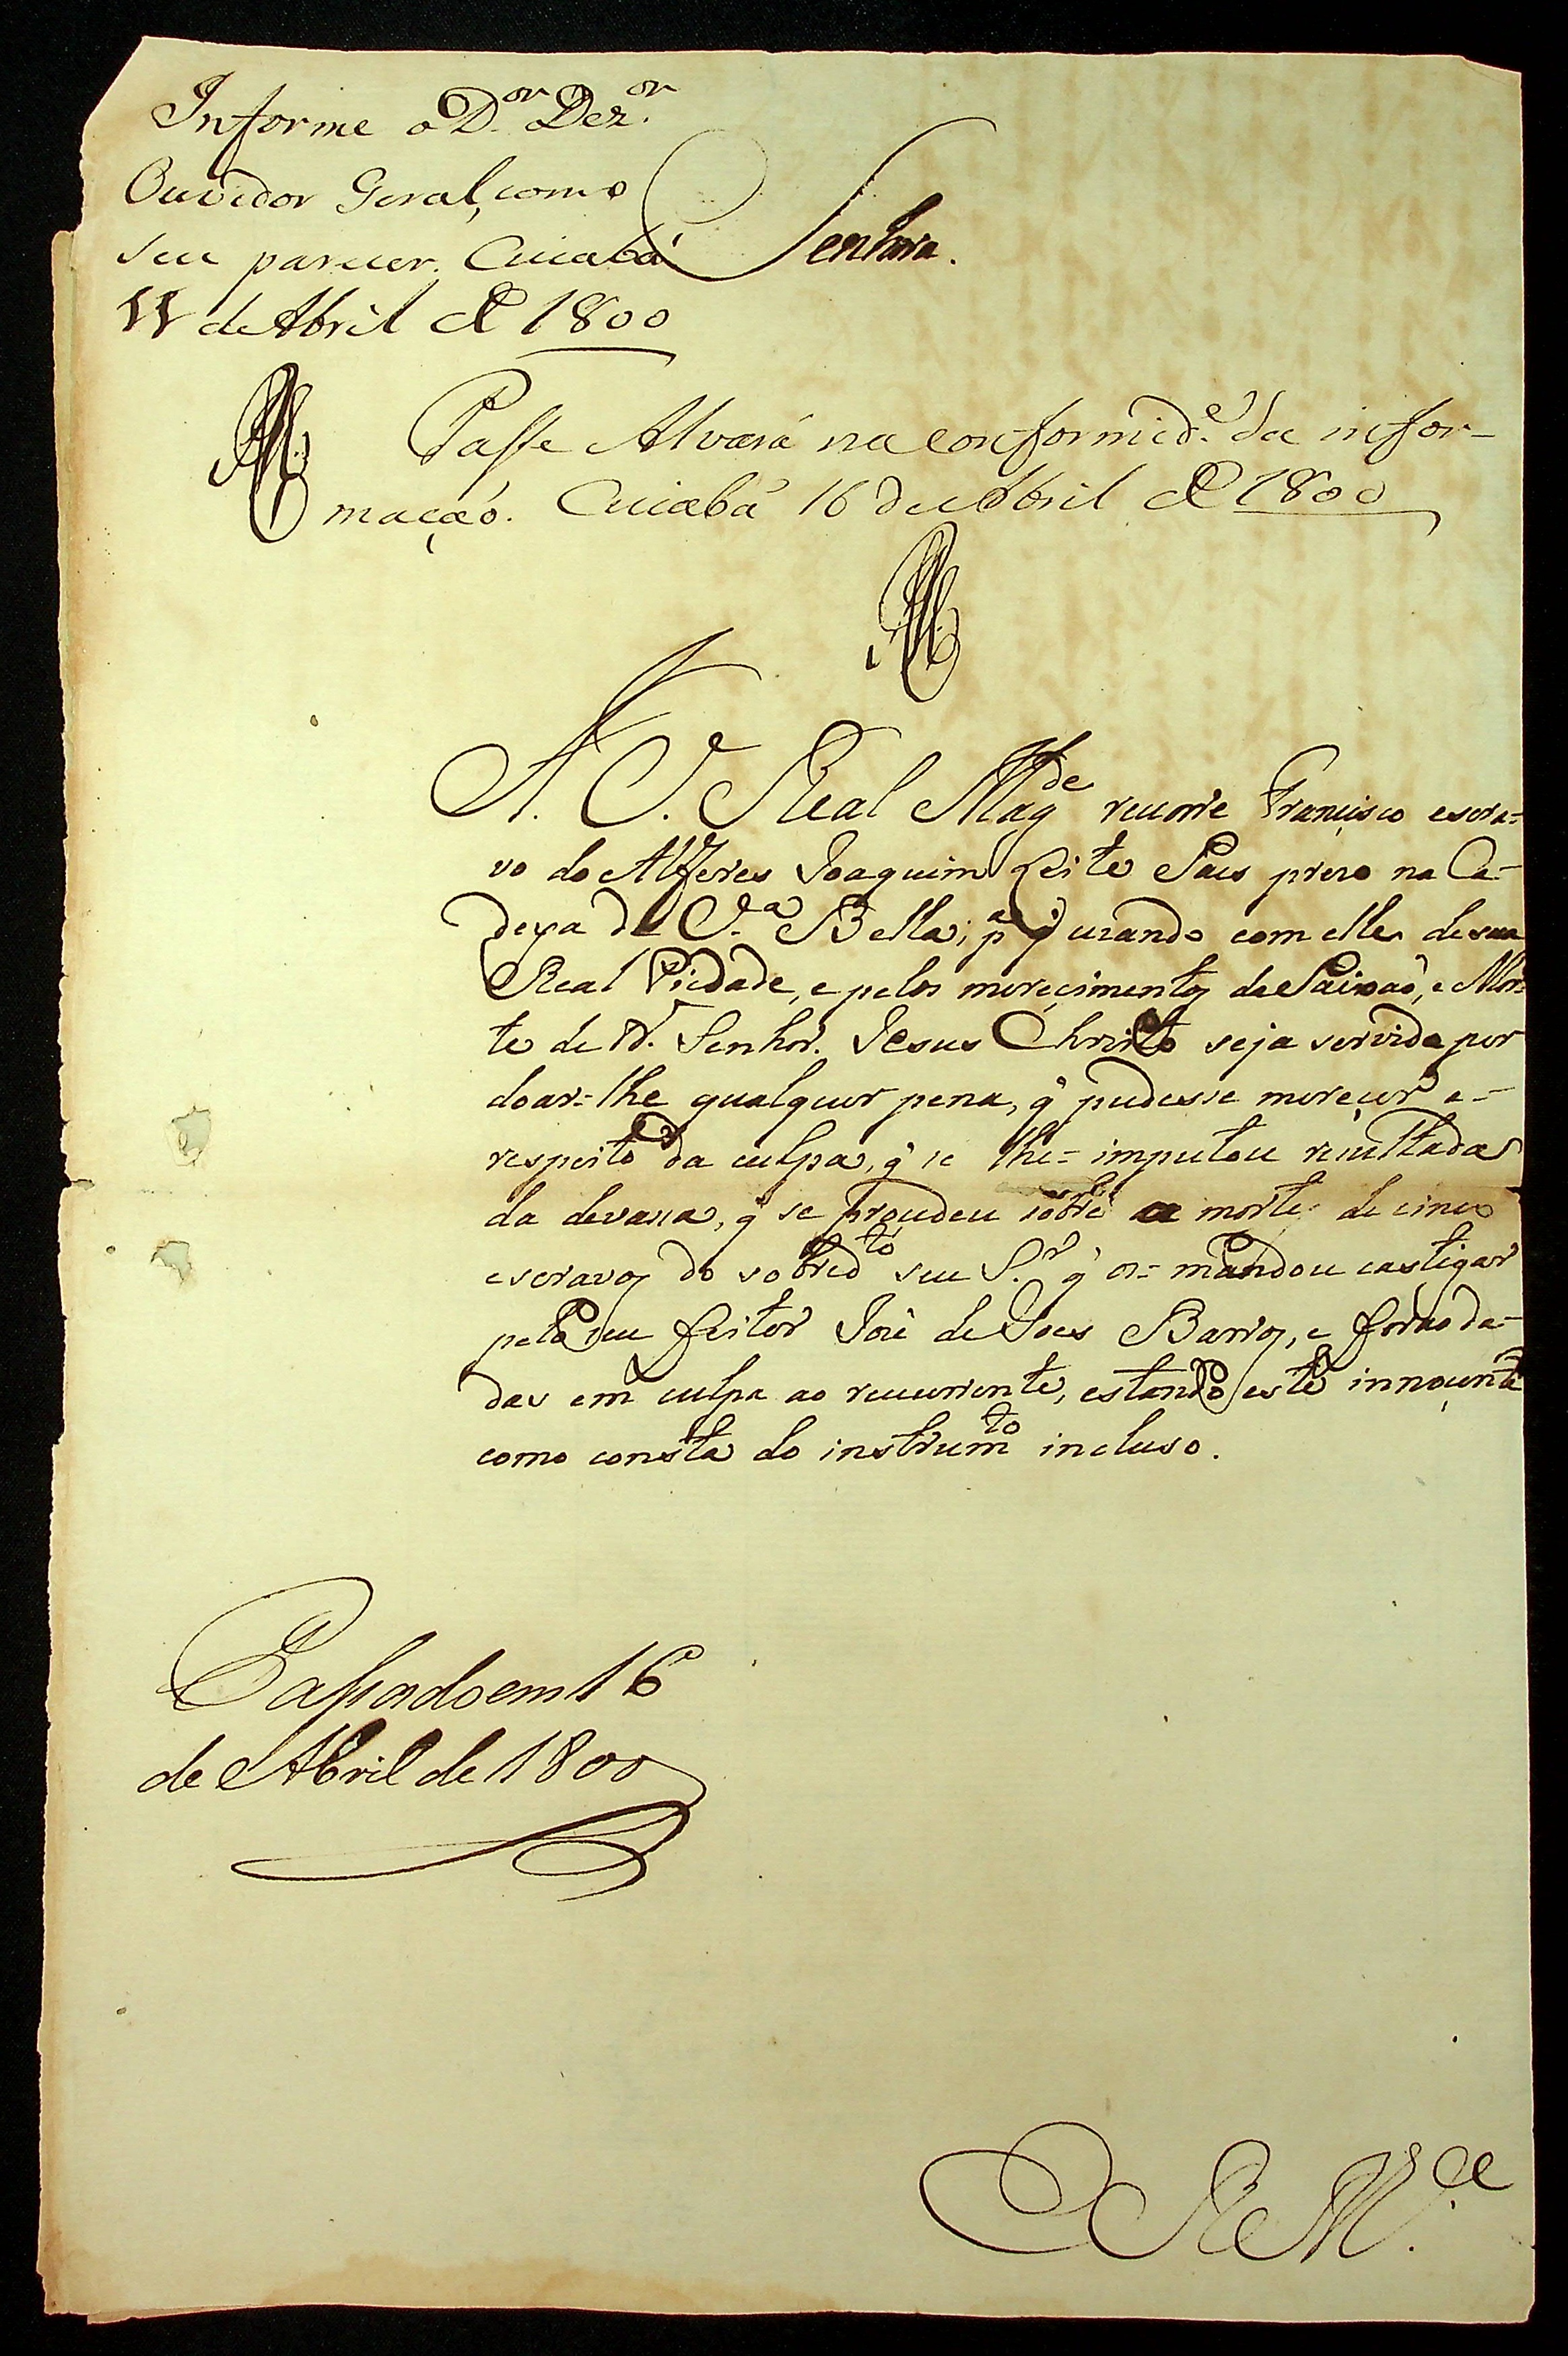 Informe o D.or Dez.or
Ouvidor Geral, com o
seu parecer. Cuiabá
11 de Abril de 1800
Senhora.
Passe Alvará na conformid.e da infor-
mação. Cuiabá 16 de Abril de 1800
A. V. Real Mag.de recorre Francisco escra=
vo do Alferes Joaquim Leite Paes prezo na Ca-
deya de V.a Bella; p.a q̃ uzando com elle de sua
Real Piedade, e pelos mereçimentos da Paixaõ, e Mor-
te de N. Senhor. Jesus Christo seja servida per
doar=lhe qualquer pena, q̃ pudesse mereçer a-
respeito da culpa, q̃ se lhe= imputou rezultada
da devassa, q̃ se proçedeu sobre a morte de cinco
escravos do sobred.to seu S.r q̃ os= mandou castigar
pelo seu feitor José de Goes Barros, e foraõ da-
das em culpa ao recorrente, estando este innoçente
como consta do instrum.to incluso.
Passado em 16
de Abril de 1800
E R M.ce